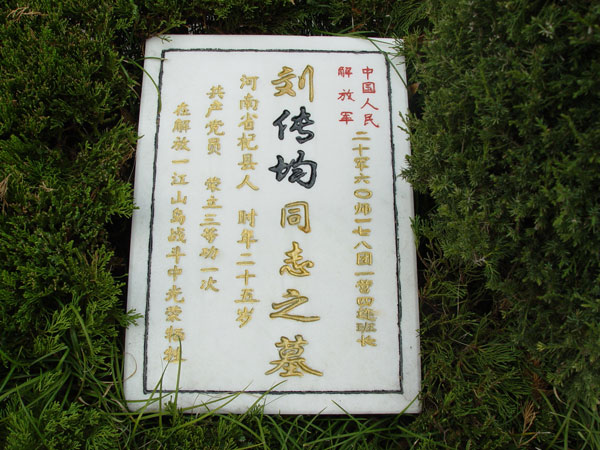 中国人民
解放军
二十军六〇师一七八团一营四连班长
刘传均同志之墓
河南省杞县人 时年二十五岁
共产党员 荣立三等功一次
在解放一江山岛战斗中光荣牺牲